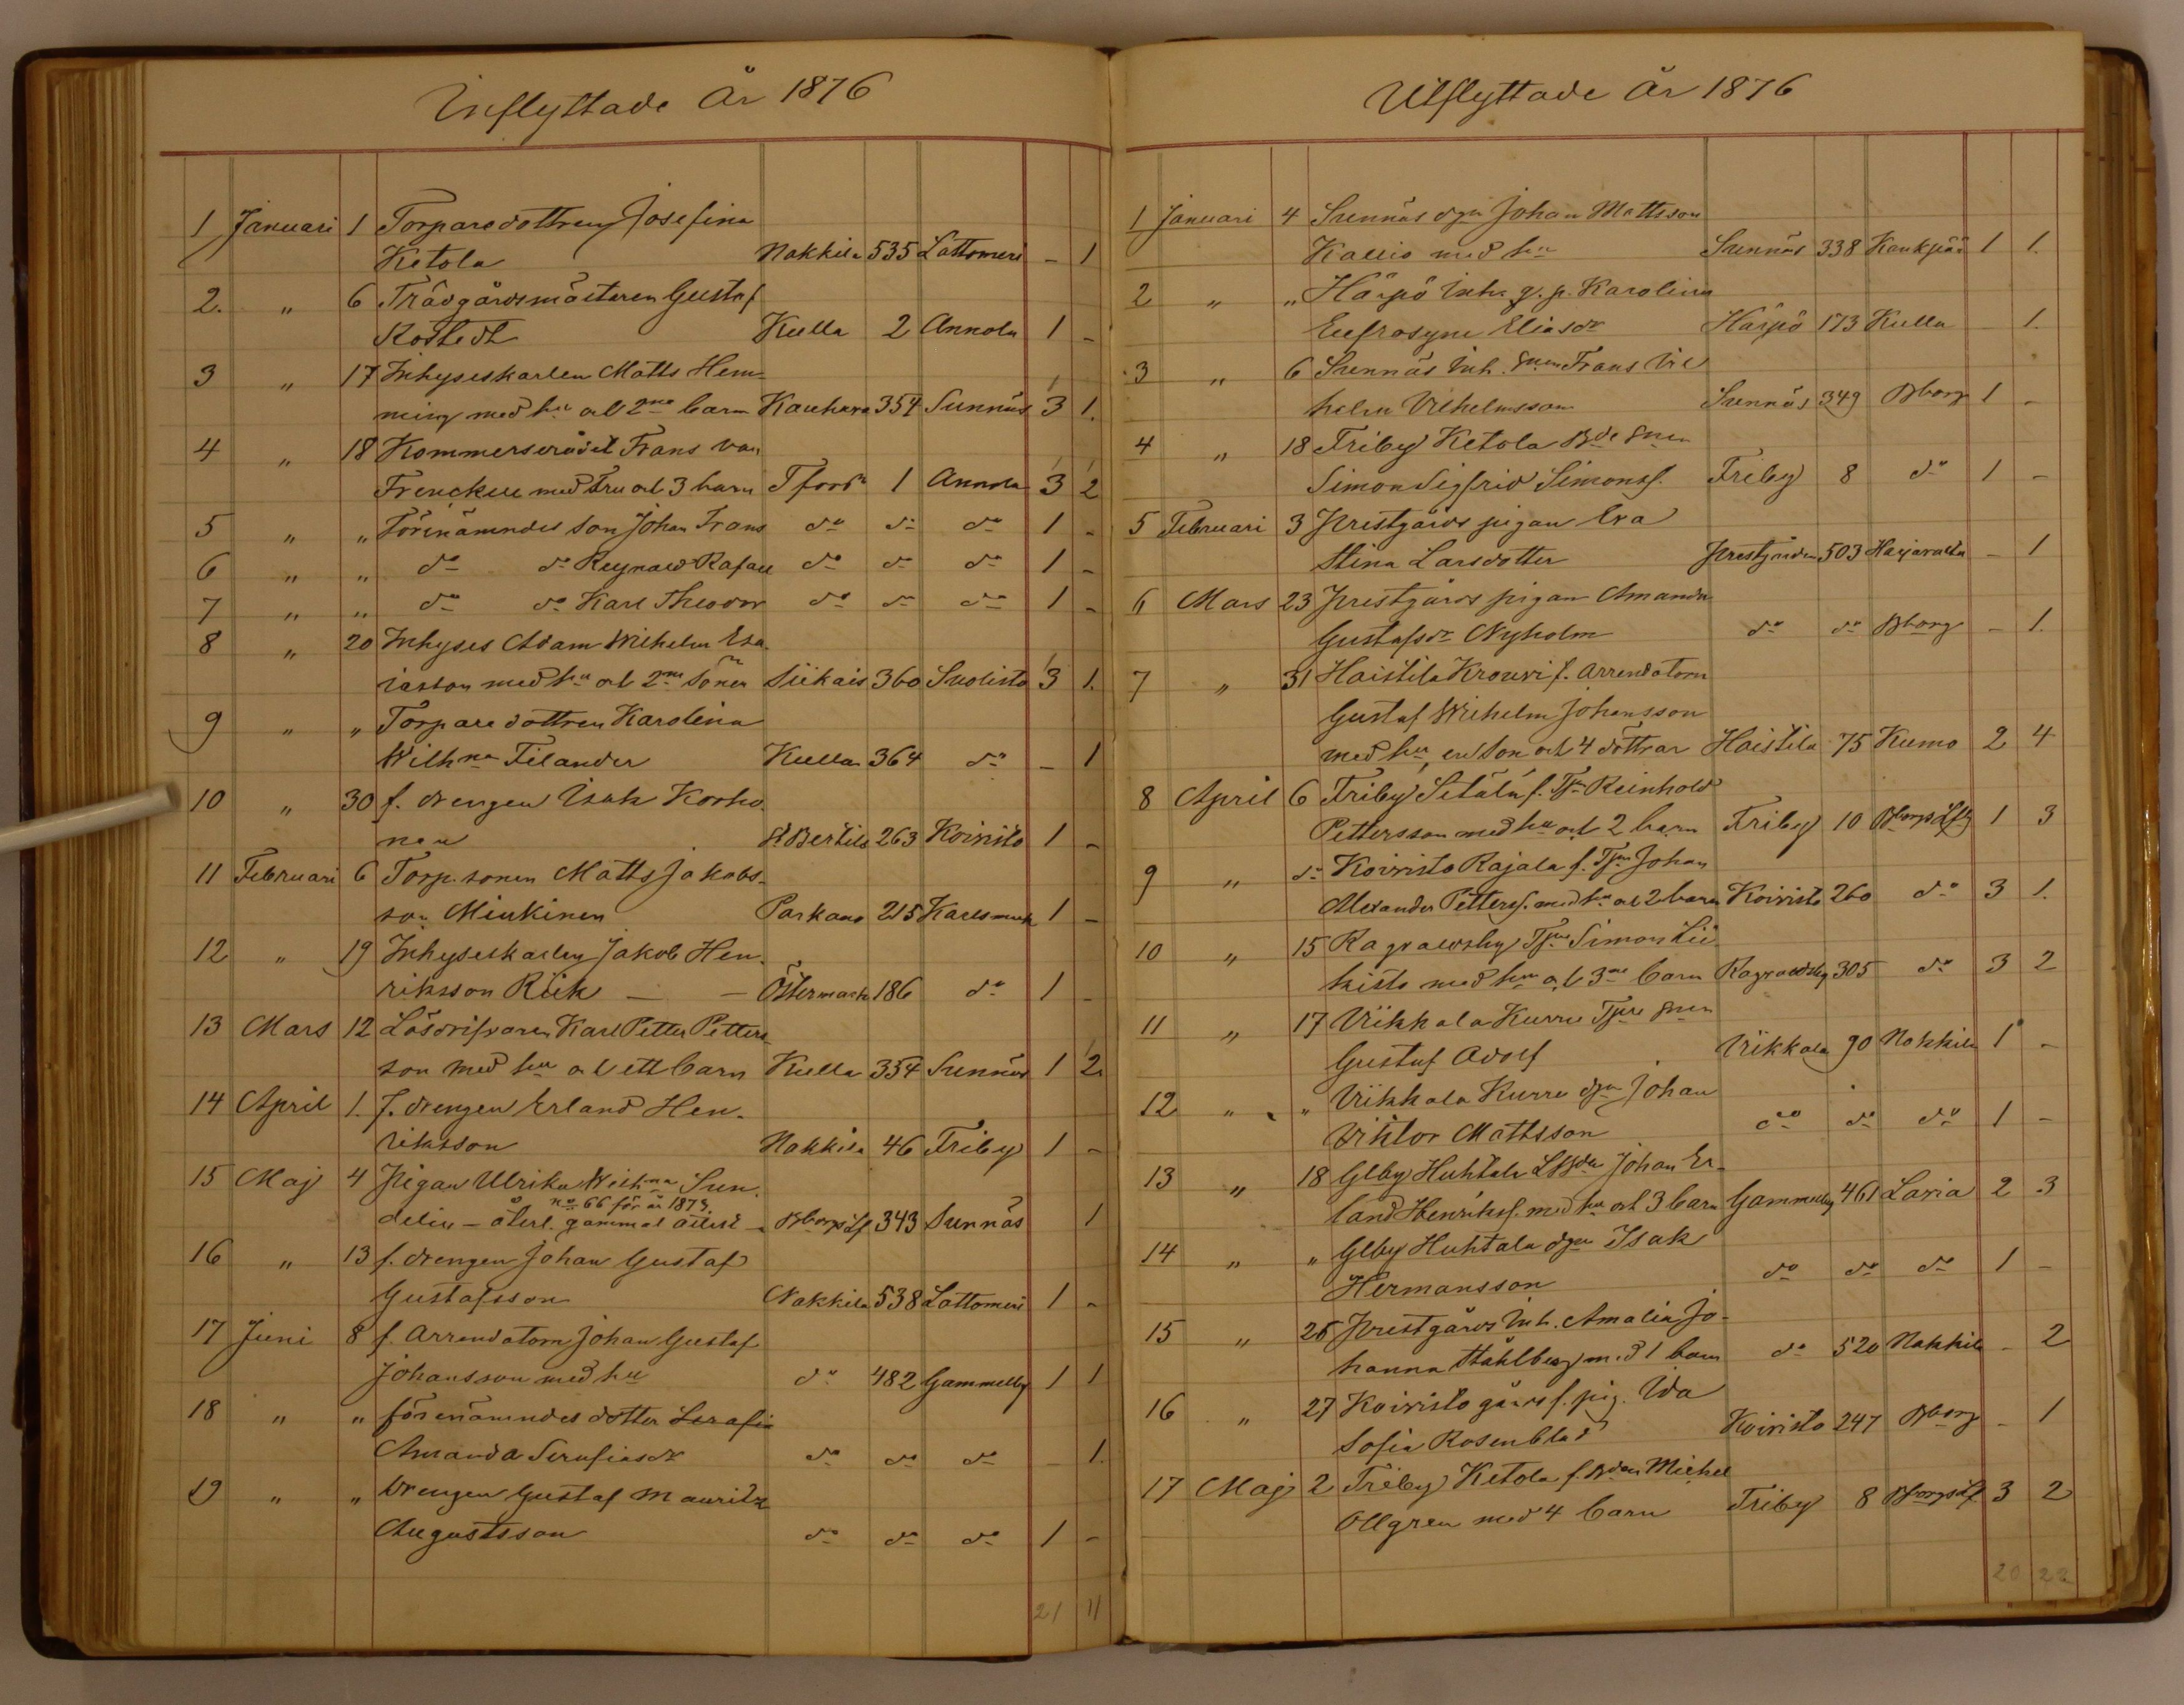 Inflyttade År 1876
1 Januari 1 Torparedottren Josefina
Ketola Nakkila 535 Lattomeri - 1
2. " 6 Trädgårdsmästaren Gustaf
Rostedt Kulla 2 Annola 1 -
3 " 17 Inhyseskarlen Matts Hem-
ming med hu och 2ne barn Kauhava 354 Sunnäs 3 1.
4 " 18 Kommerserådet Frans von
Frenckell med Fru och 3 barn Tfors 1 Annola 3 2
5 " " Förenämndes son Johan Frans do do do 1 -
6 " " do do Reynold Rafael do do do 1 -
7 " " do do Karl Theodor do do do 1 -
8 " 20 Inhyses Adam Wilhelm Esa-
iasson med hu och 2ne Söner Siikais 360 Suolisto 3 1.
9 " " Torparedottren Karolina
Wilhna Filander Kulla 364 do - 1
10 " 30 f. drengen Isak Korho-
nen St Bertils 263 Koivisto 1 -
11 Februari 6 Torp. sonen Matts Jakobs-
son Minkinen Parkano 215 Karlsmark 1 -
12 " 19 Inhyseskarlen Jakob Hen-
riksson Rück — — Östermark 186 do 1 -
13 Mars 12 Lösdrifvaren Karl Petter Petters-
son med hu och ett barn Kulla 354 Sunnäs 1 2.
14 April 1. f. drengen Erland Hen-
riksson Nakkila 46 Friby 1 -
15 Maj 4 Pigan Ulrika Wilhna Sun-
no 66 för år 1873.
delin - återl. gammal attest - Bborgs Lf 343 Sunnäs 1
16 " 13 f. drengen Johan Gustaf
Gustafsson Nakkila 538 Lattomeri 1 -
17 Juni 8 f. Arrendatorn Johan Gustaf
Johansson med hu do 482 Gammelby 1 1
18 " " förenämndes dotter Serafia
Amanda Serafiasdr do do do - 1.
19 " " Drengen Gustaf Mauritz
Augustsson do do do 1 -
21 11
Utflyttade År 1876
1 Januari 4 Sunnäs dgn Johan Mattsson
Kallio med hu Sunnäs 338 Kankpää 1 1.
2 " " Härpö Inh. g. p. Karolina
Eufrosyne Eliasdr Härpö 173 Kulla - 1.
3 " 6 Sunnäs Inh. snen Frans Vil
helm Vilhelmsson Sunnäs 349 Bborg 1 -
4 " 18 Friby Ketola Bde snen
Simon Sigfrid Simonss. Friby 8 do 1 -
5 Februari 3 Prestgårds pigan Eva
Stina Larsdotter Prestgården 503 Harjavalta - 1
6 Mars 23 Prestgårds pigan Amanda
Gustafsdr Nyholm do do Bborg - 1.
7 " 31 Haistila Krouvi f. Arrendatorn
Gustaf Wilhelm Johansson
med hu, en son och 4 döttrar Haistila 75 Kumo 2 4
8 April 6 Friby Setälä f. Tjn Reinhold
Pettersson med hu och 2 barn Friby 10 Bborgs Lfg 1 3
9 " do Koivisto Rajala f. Tjn Johan
Alexander Petterss. med hu och 2 barn Koivisto 260 do 3 1.
10 " 15 Ragvaldsby Tjne Simon Lii
kisto med hu och 3ne barn Ragvaldsby 305 do 3 2
11 " 17 Viikkala Kurru Tjne snen
Gustaf Adolf Viikkala 90 Nakkila 1 -
12 " " Viikkala Kurru dgn Johan
Viktor Mattsson do do do 1 -
13 " 18 Glby Huhtala Johan Er-
land Henrikss. med hu och 3 barn Gammelby 461 Lavia 2 3
14 " " Glby Huhtala dgn Isak
Hermansson do do do 1 -
15 " 25 Prestgårds Inh. Amalia Jo-
hanna Ståhlberg med 1 barn do 520 Nakkila - 2
16 " 27 Koivisto gårds f. pig. Ida
Sofia Rosenblad Koivisto 247 Bborg - 1
17 Maj 2 Friby Ketola f. Bden Michel
Ollgren med 4 barn Friby 8 Bborgs Lf 3 2
20 22